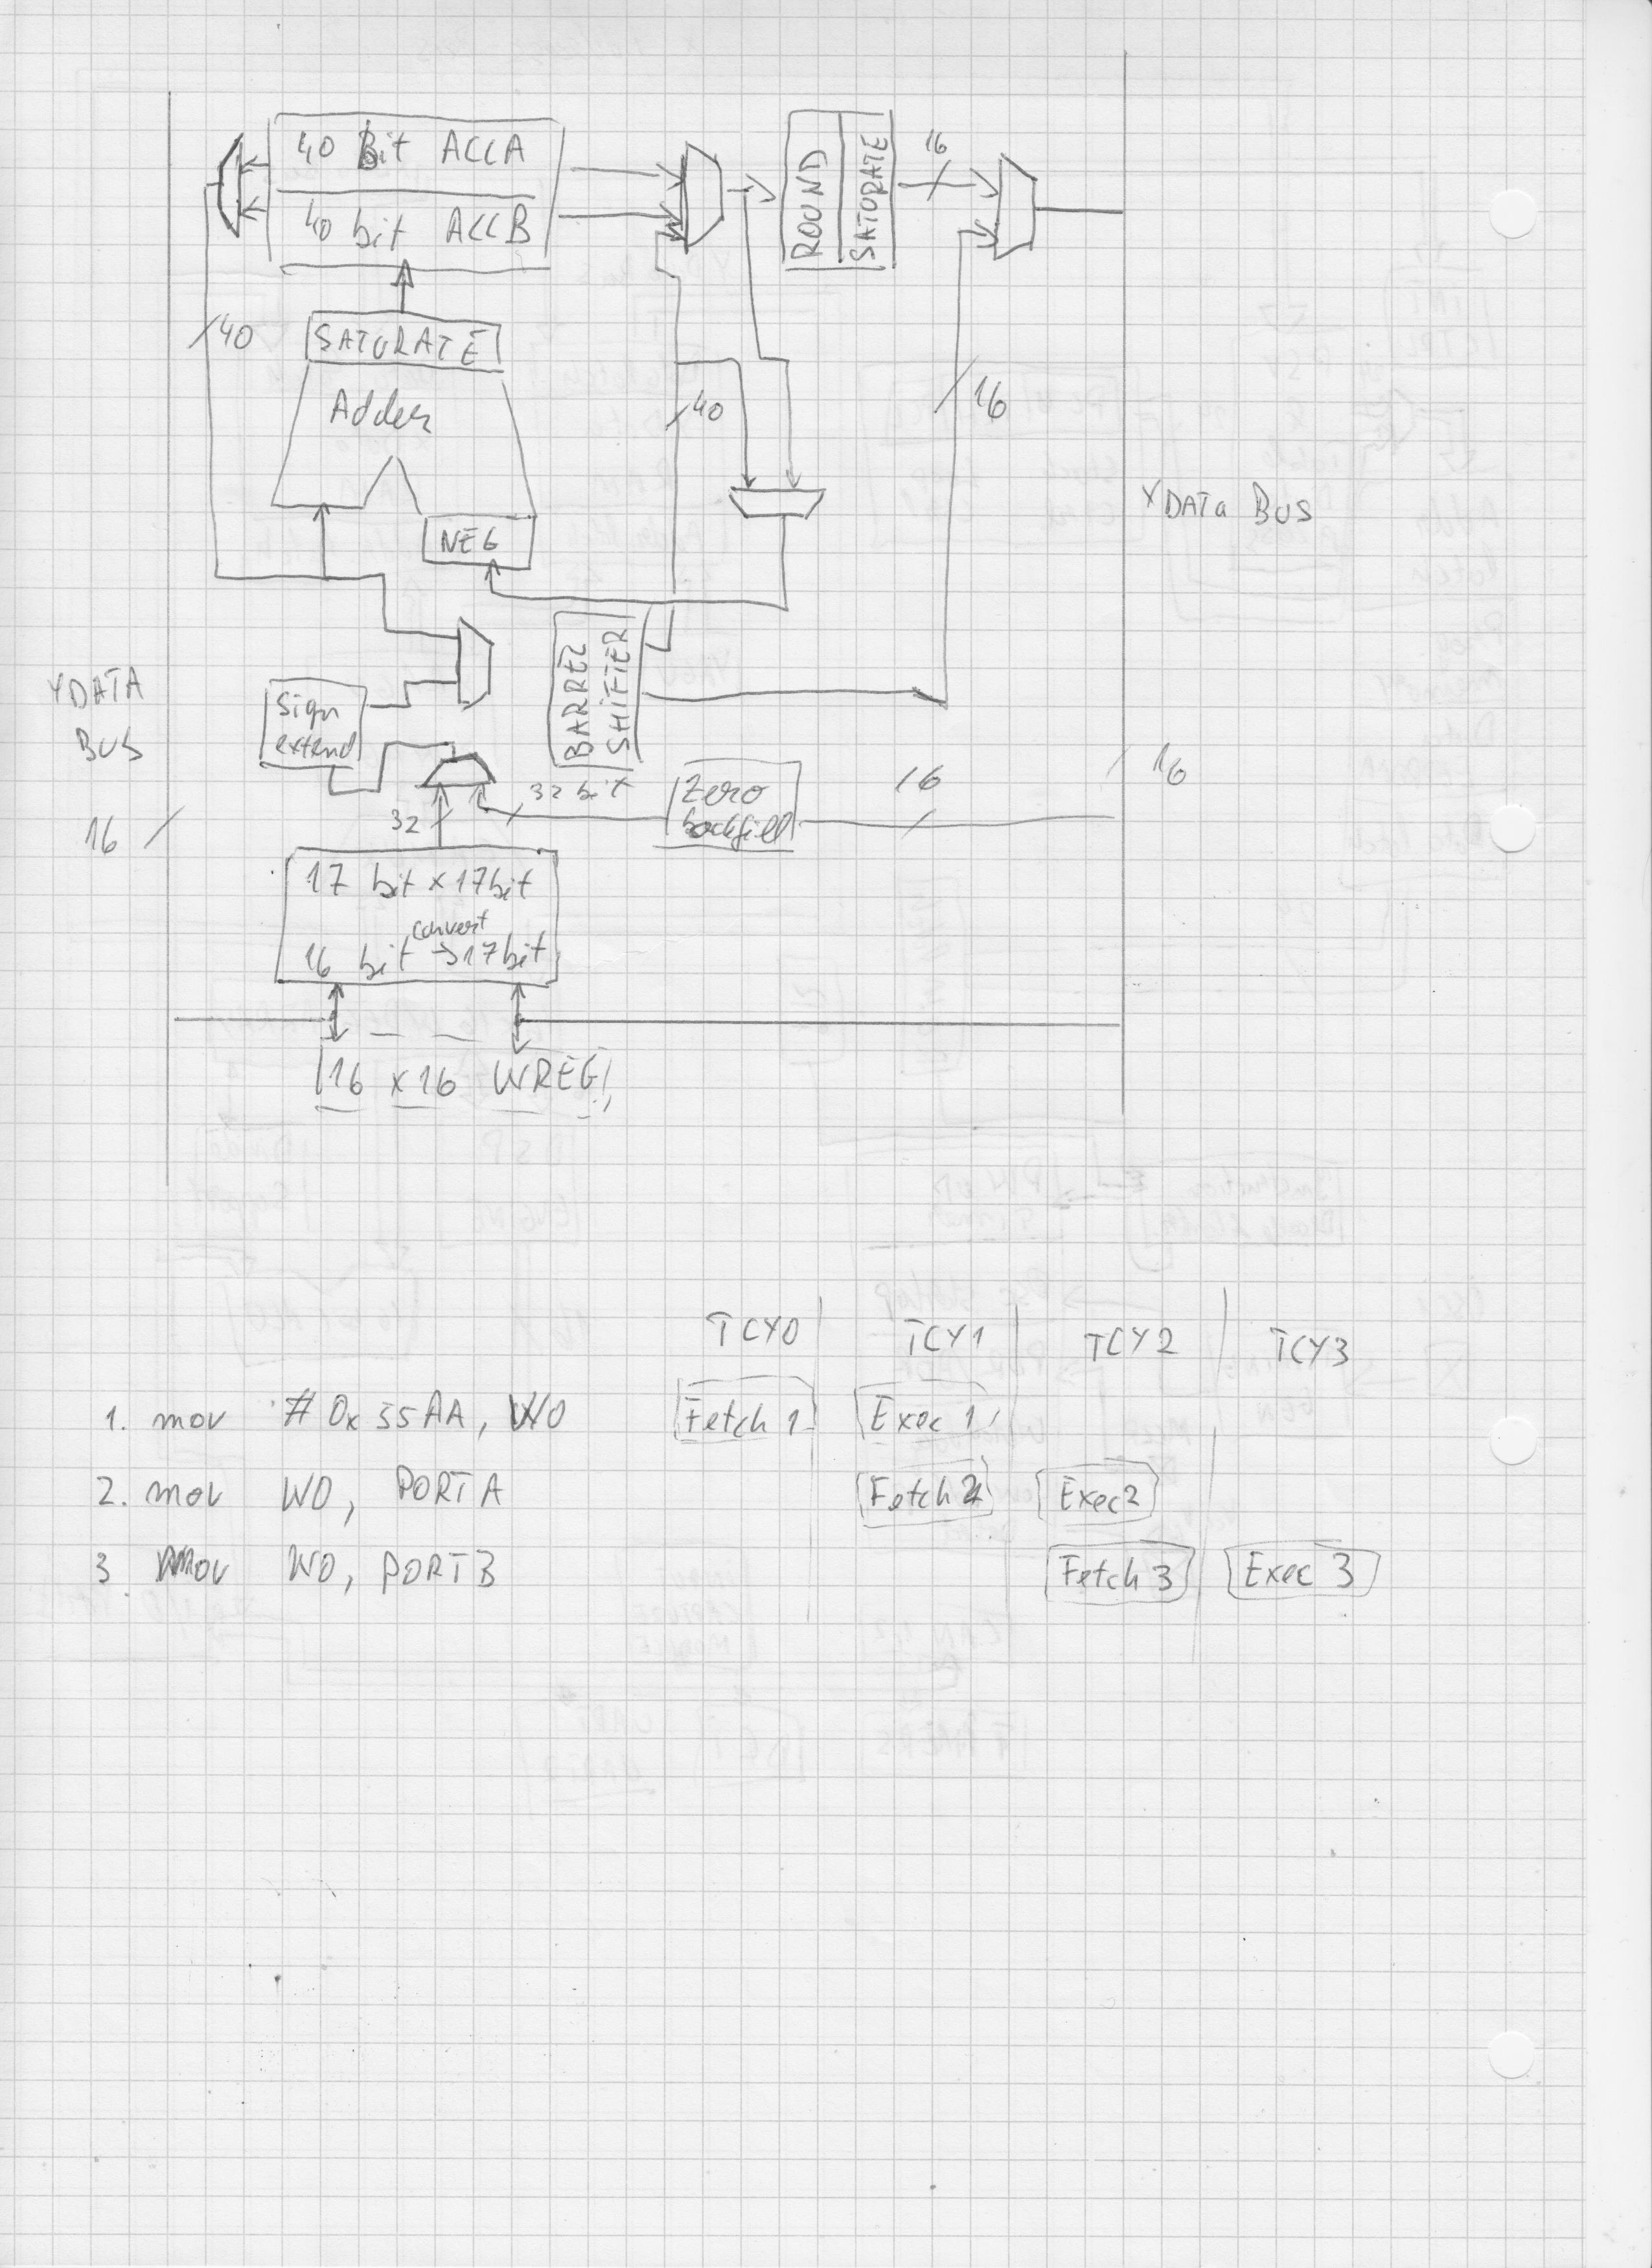 40 Bit ACCA
40 bit ACCB
ROUND
SATURATE
16
/40
SATURATE
Adder
40
16
NEG
XDATA BUS
YDATA
BUS
Sign
extend
BARREL
SHIFTER
16
16
32 bit
Zero
backfill
32
16
17 bit x 17bit
convert
16 bit → 17bit
16 x 16 WREG
TCY0 TCY1 TCY2 TCY3
1. mov #0x55AA, W0 Fetch 1 Exec 1
2. mov W0, PORTA Fetch 2 Exec2
3. mov W0, PORTB Fetch 3 Exec 3